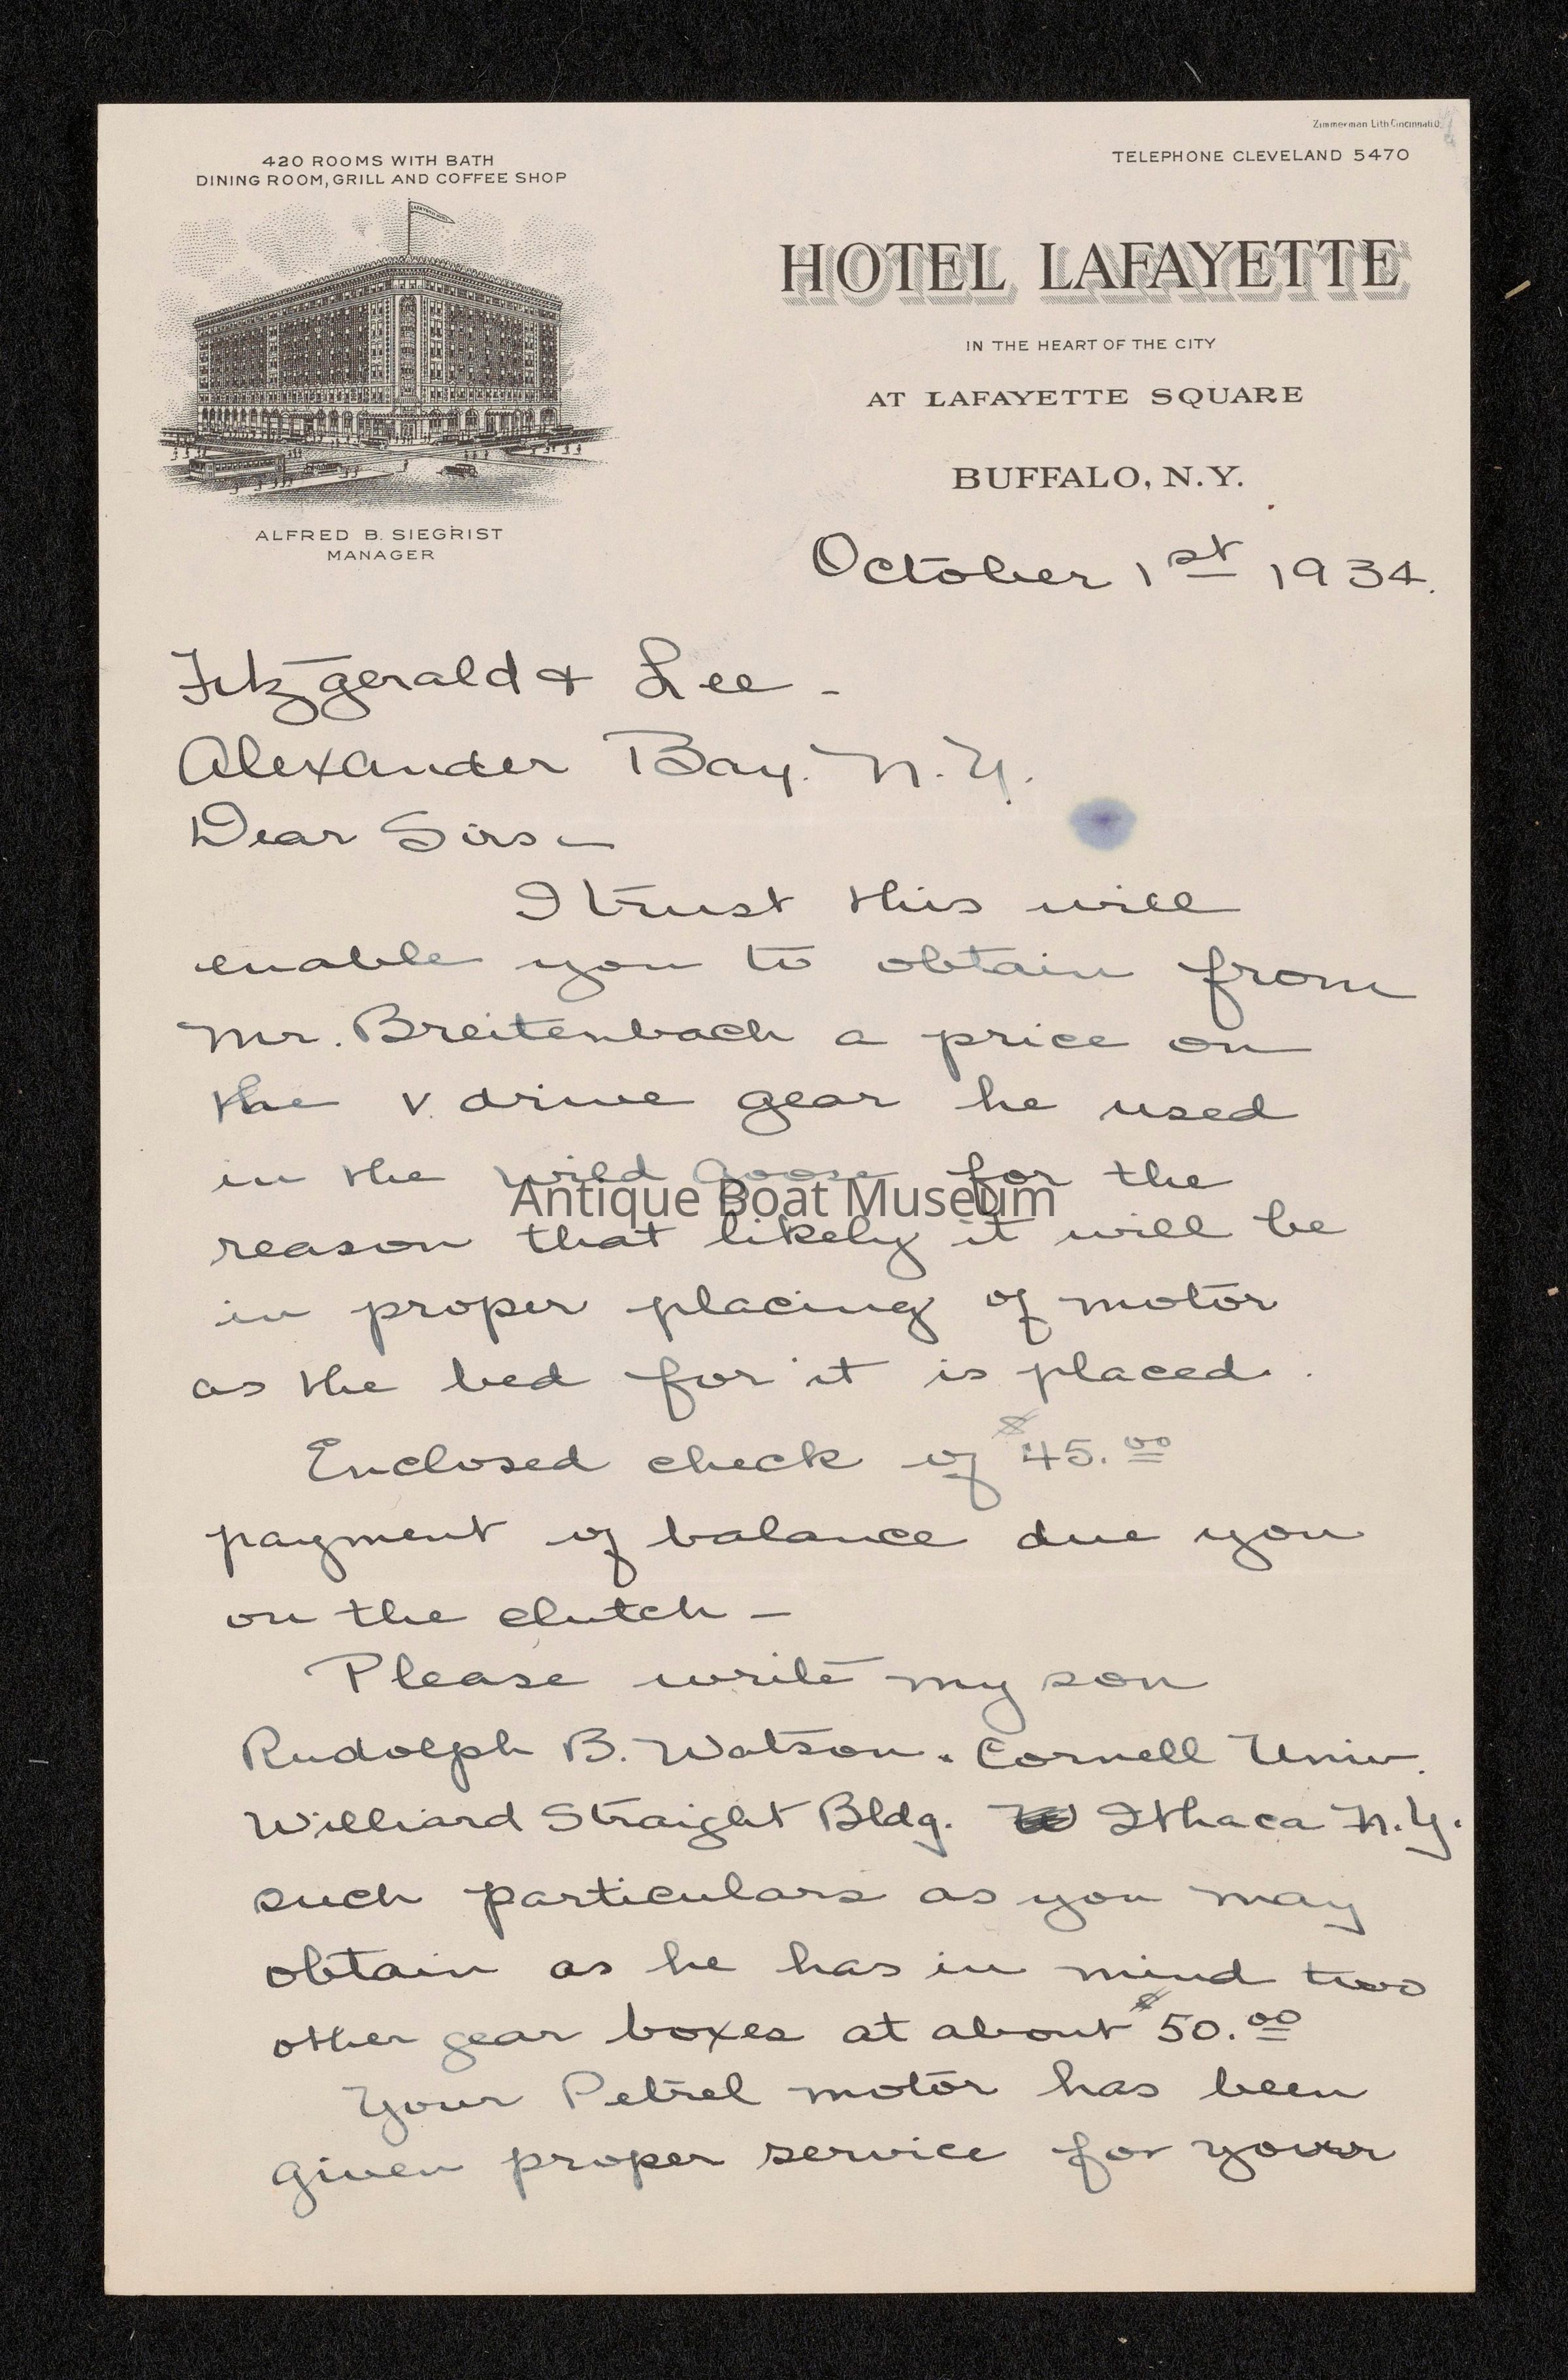 Zimmerman Lith Cincinnati.O.
420 ROOMS WITH BATH
DINING ROOM, GRILL AND COFFEE SHOP
TELEPHONE CLEVELAND 5470
HOTEL LAFAYETTE
IN THE HEART OF THE CITY
AT LAFAYETTE SQUARE
BUFFALO, N.Y.
ALFRED B. SIEGRIST
MANAGER
October 1st 1934.
Fitzgerald & Lee -
Alexander Bay. N.Y.
Dear Sirs -
I trust this will
enable you to obtain from
Mr. Breitenbach a price on
the V. drive gear he used
in the Wild Goose for the
Antique Boat Museum
reason that likely it will be
in proper placing of motor
as the bed for it is placed.
Enclosed check of $45.00
payment of balance due you
on the clutch -
Please write my son
Rudolph B. Watson. Cornell Univ.
Williard Straight Bldg. Ithaca N.Y.
such particulars as you may
obtain as he has in mind two
other gear boxes at about $50.00
Your Petrel motor has been
given proper service for your